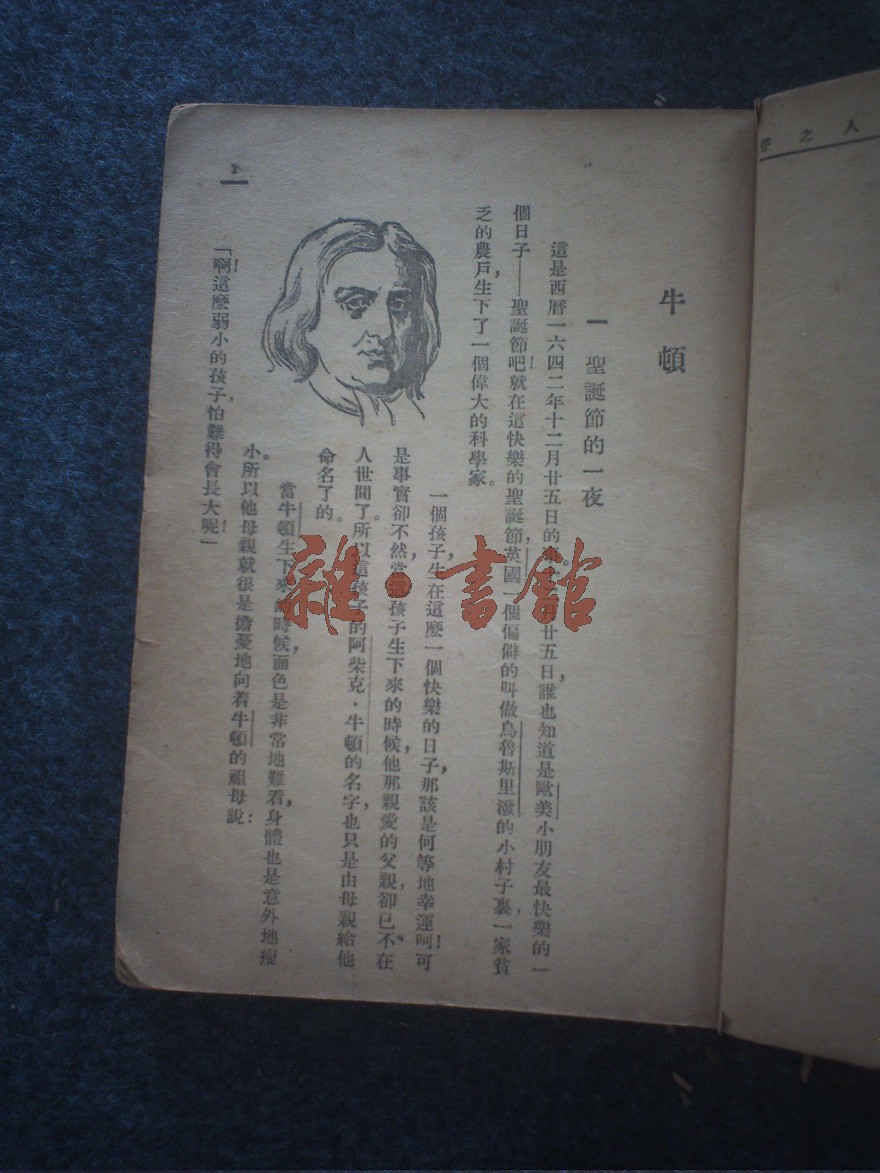 人之
牛頓
一 聖誕節的一夜
這是西曆一六四二年十二月廿五日的 月廿五日，誰也知道是歐美小朋友最快樂的一
個日子——聖誕節吧！就在這快樂的聖誕節，英國一個偏僻的叫做烏魯斯里潑的小村子裏，一家貧
乏的農戶，生下了一個偉大的科學家。
一個孩子，生在這麼一個快樂的日子，那該是何等地幸運呵！可
是事實卻不然，當 孩子生下來的時候，他那親愛的父親，卻已不在
人世間了。所以這孩子的阿柴克·牛頓的名字，也只是由母親給他
命名了的。
當牛頓生下來 時候，面色是非常地難看，身體也是意外地瘦
小。所以他母親就很是擔憂地向着牛頓的祖母說：
「啊！這麼弱小的孩子，怕難得會長大呢！」
1
雜·書館